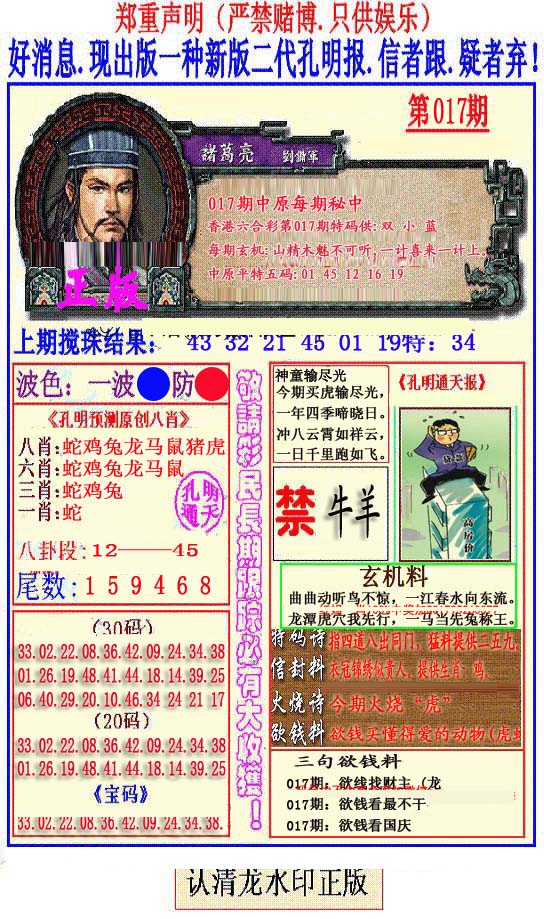 郑重声明（严禁赌博.只供娱乐）
好消息.现出版一种新版二代孔明报.信者跟.疑者弃!
第017期
諸葛亮 劉備軍
017期中原每期秘中
香港六合彩第017期特码供: 双 小 蓝
每期玄机: 山精木魅不可听, 一计喜来一计上。
中原平特五码: 01 45 12 16 19
正版
上期搅珠结果: 43 32 21 45 01 19特: 34
波色: 一波 防
《孔明预测原创八肖》
八肖:蛇鸡兔龙马鼠猪虎
六肖:蛇鸡兔龙马鼠
三肖:蛇鸡兔
一肖:蛇
孔明通天
八卦段:12——45
尾数:159468
(30码)
33.02.22.08.36.42.09.24.34.38
01.26.19.48.41.44.18.14.39.25
06.40.29.20.10.46.34 24 21 17
(20码)
33.02.22.08.36.42.09.24.34.38
01.26.19.48.41.44.18.14.39.25
《宝码》
33.02.22.08.36.42.09.24.34.38.
敬請彩民長期跟踪必有大收獲!
神童输尽光
今期买虎输尽光，
一年四季啼晓日。
冲八云霄如祥云，
一日千里跑如飞。
《孔明通天报》
禁 牛羊
高房价
玄机料
曲曲动听鸟不惊，一江春水向东流。
龙潭虎穴我先行，一马当先兔称王。
特码诗 指四道八出同门, 猛料提供二五九.
信封料 衣冠锦绣似贵人, 提供生肖: 鸡.
火烧诗 今期火烧“虎”
欲钱料 欲钱买懂得爱的动物(虎蛇
三句欲钱料
017期: 欲线找财主（龙
017期: 欲钱看最不干
017期: 欲钱看国庆
认清龙水印正版